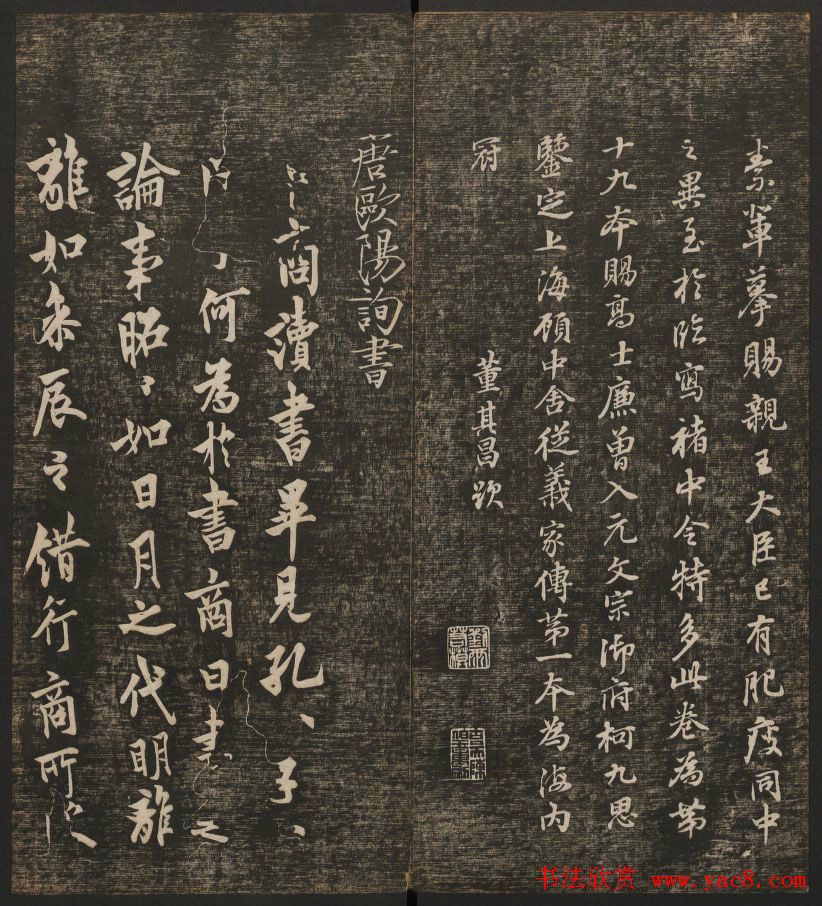 素輩摹賜親王大臣已有肥瘦同中
之異至於臨寫褚中令特多此卷為第
十九本賜高士廉曾入元文宗御府柯九思
鑒定上海顧中舍從義家傳第一本為海内
冠
董其昌
唐歐陽詢書
商讀書畢見孔〻子〻
何為於書商曰書之
論事昭〻如日月之代明離
離如參辰之錯行商所
书法欣赏 www.yac8.com